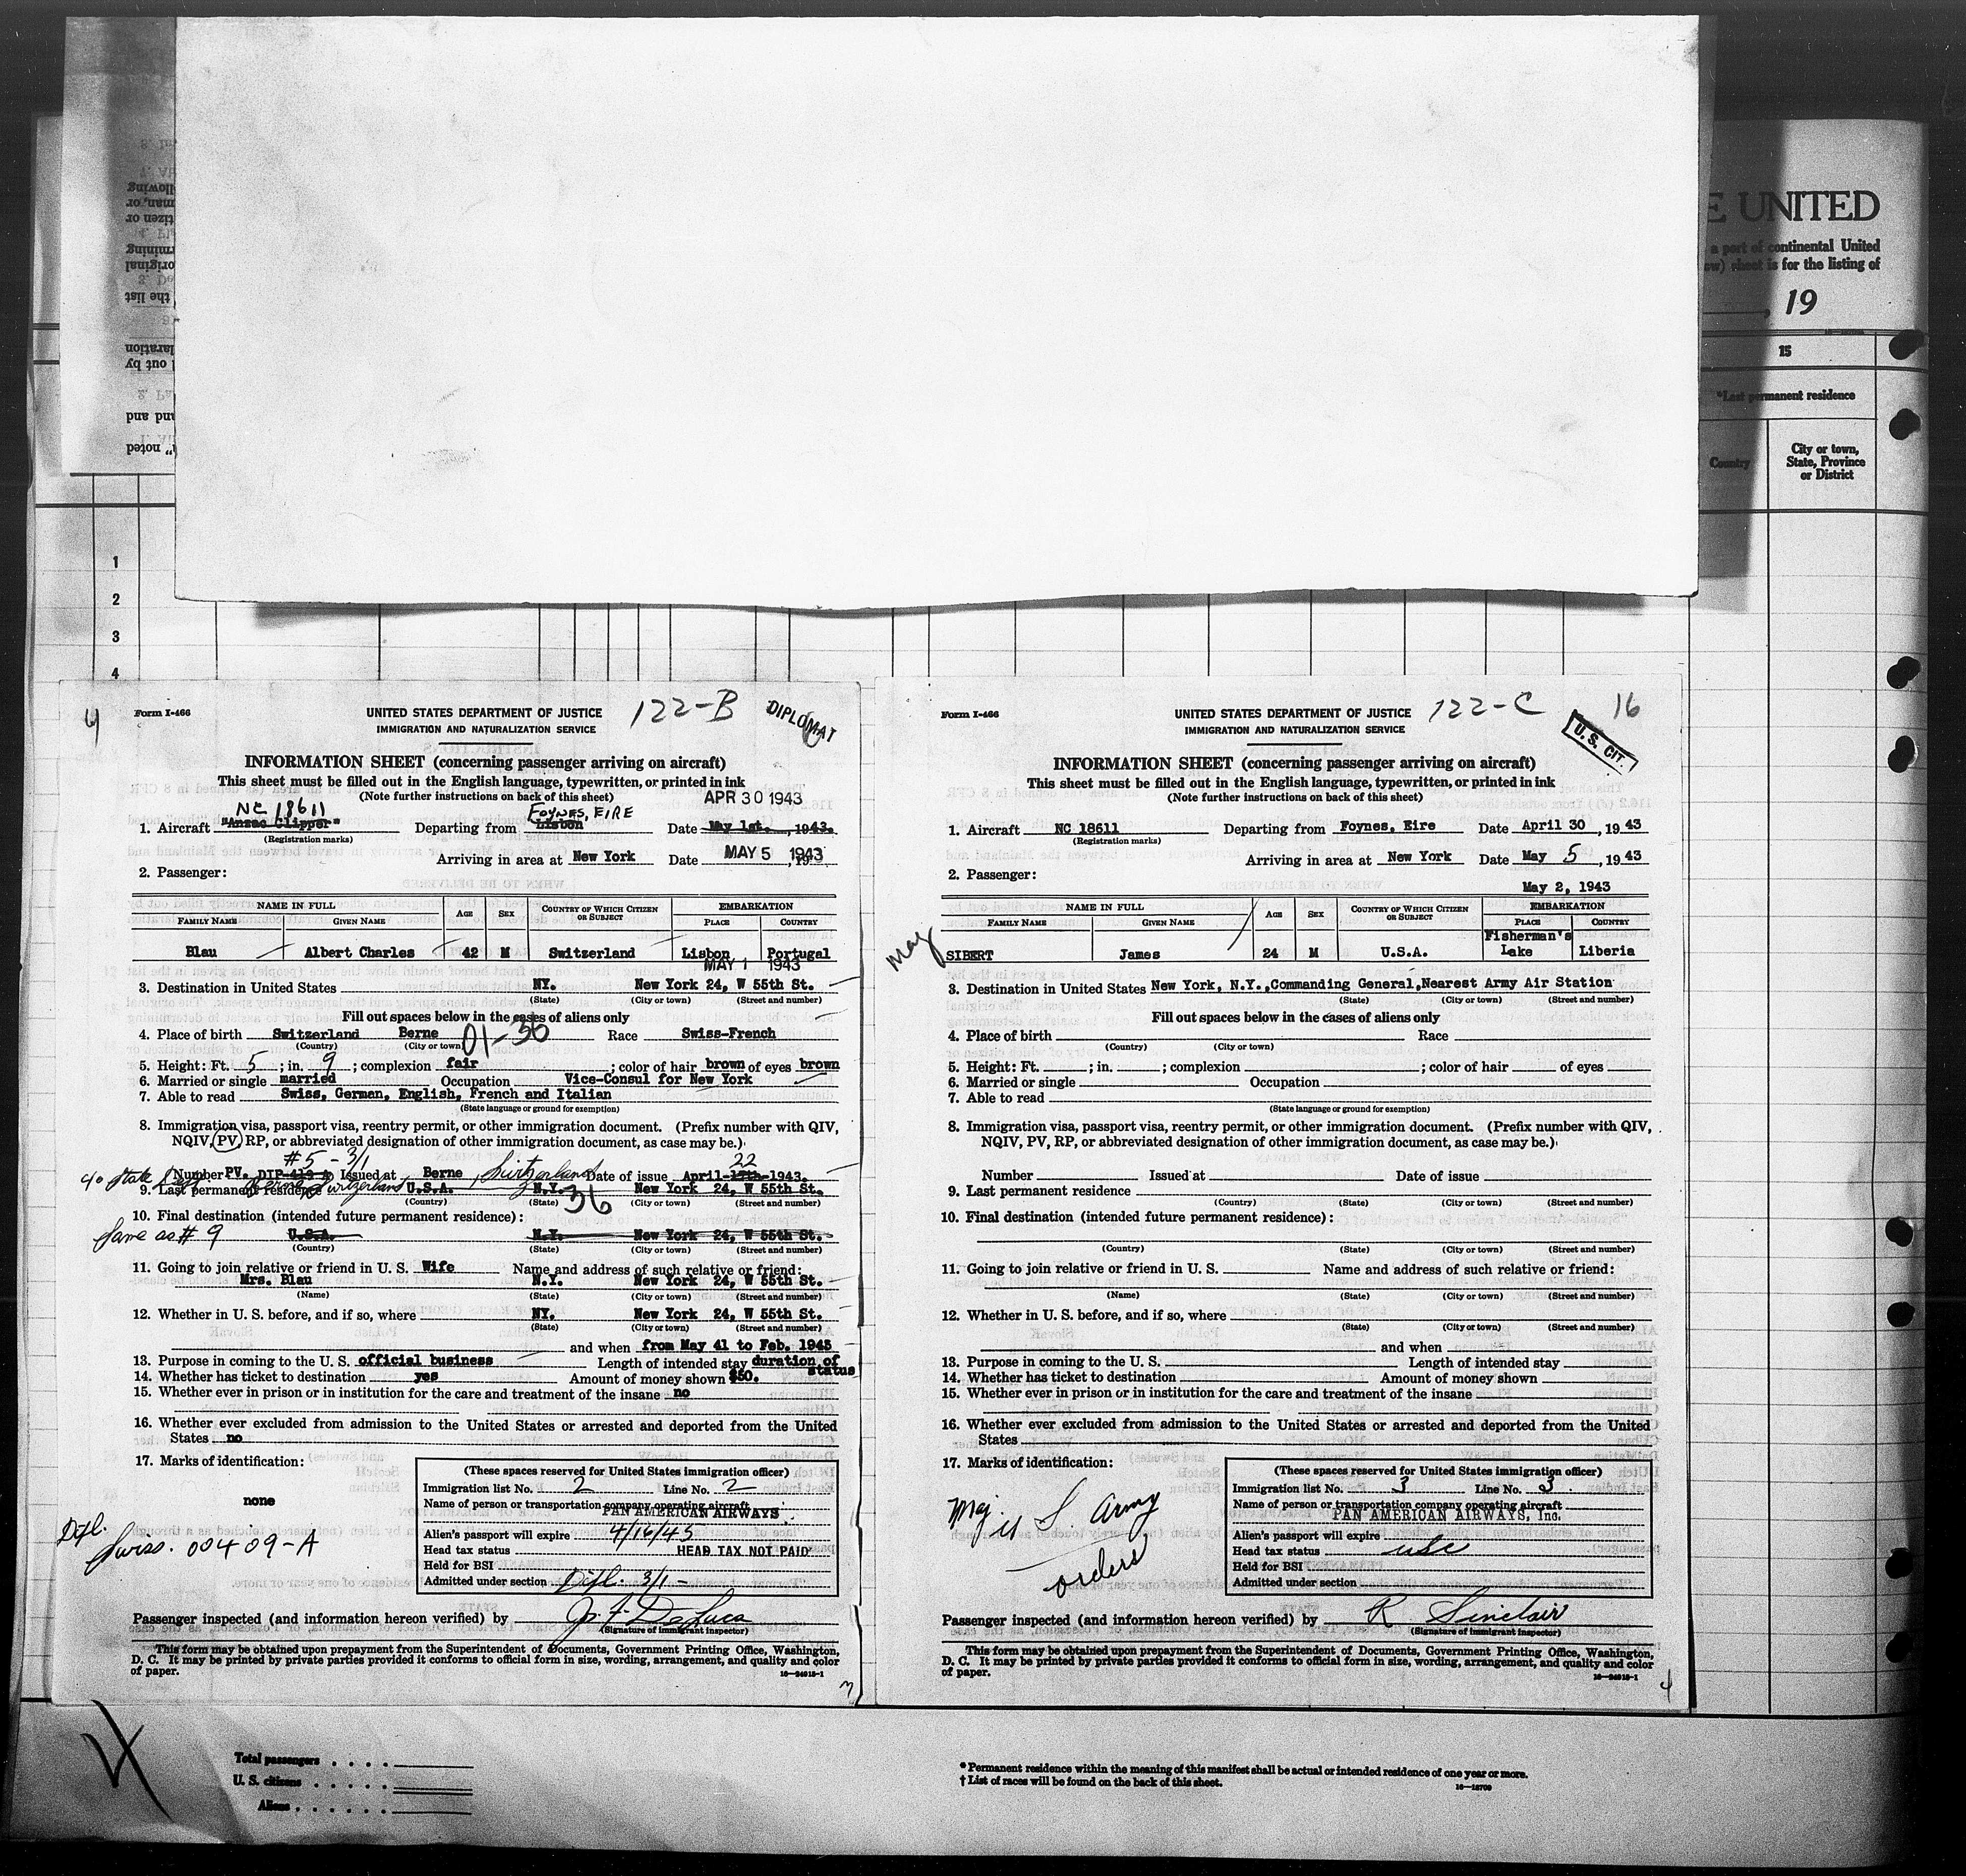 E UNITED
a port of continental United
ow) sheet is for the listing of
, 19
15
*Last permanent residence
Country
City or town,
State, Province
or District
1
2
3
4
Form I-466
122-B
DIPLOMAT
UNITED STATES DEPARTMENT OF JUSTICE
IMMIGRATION AND NATURALIZATION SERVICE
INFORMATION SHEET (concerning passenger arriving on aircraft)
This sheet must be filled out in the English language, typewritten, or printed in ink
(Note further instructions on back of this sheet)
APR 30 1943
NC 18611
FOYNES, EIRE
1. Aircraft "Anzac Clipper" Departing from Lisbon Date May 1st. , 1943.
(Registration marks)
Arriving in area at New York Date MAY 5 1943
2. Passenger:
NAME IN FULL AGE SEX COUNTRY OF WHICH CITIZEN OR SUBJECT EMBARKATION
FAMILY NAME GIVEN NAME PLACE COUNTRY
Blau Albert Charles 42 M Switzerland Lisbon Portugal
MAY 1 1943
3. Destination in United States NY. New York 24, W 55th St.
(State) (City or town) (Street and number)
Fill out spaces below in the cases of aliens only
4. Place of birth Switzerland Berne 01-36 Race Swiss-French
(Country) (City or town)
5. Height: Ft. 5 ; in. 9 ; complexion fair ; color of hair brown of eyes brown
6. Married or single married Occupation Vice-Consul for New York
7. Able to read Swiss, German, English, French and Italian
(State language or ground for exemption)
8. Immigration visa, passport visa, reentry permit, or other immigration document. (Prefix number with QIV,
NQIV, PV, RP, or abbreviated designation of other immigration document, as case may be.)
#5-3/1
22
Number PV. DIP 413-A Issued at Berne, Switzerland Date of issue April 17th 1943.
9. Last permanent residence Switzerland U.S.A. N.Y. 36 New York 24, W 55th St.
(Country) (State) (City or town) (Street and number)
10. Final destination (intended future permanent residence):
Same as #9 U.S.A. N.Y. New York 24, W 55th St.
(Country) (State) (City or town) (Street and number)
11. Going to join relative or friend in U. S. Wife Name and address of such relative or friend:
Mrs. Blau N.Y. New York 24, W 55th St.
(Name) (State) (City or town) (Street and number)
12. Whether in U. S. before, and if so, where NY. New York 24, W 55th St.
(State) (City or town) (Street and number)
and when from May 41 to Feb. 1943
13. Purpose in coming to the U. S. official business Length of intended stay duration of
status
14. Whether has ticket to destination yes Amount of money shown $50.
15. Whether ever in prison or in institution for the care and treatment of the insane no
16. Whether ever excluded from admission to the United States or arrested and deported from the United
States no
17. Marks of identification:
none
Dipl.
Swiss. 00409-A
(These spaces reserved for United States immigration officer)
Immigration list No. 2 Line No. 2
Name of person or transportation company operating aircraft
PAN AMERICAN AIRWAYS
Alien's passport will expire 4/16/45
Head tax status HEAD TAX NOT PAID
Held for BSI
Admitted under section Dipl. 3/1 -
Passenger inspected (and information hereon verified) by J. F. DeLuca
(Signature of immigrant inspector)
This form may be obtained upon prepayment from the Superintendent of Documents, Government Printing Office, Washington,
D. C. It may be printed by private parties provided it conforms to official form in size, wording, arrangement, and quality and color
of paper.
16—24915-1
3
Form I-466
122-C
16
U. S. CIT.
UNITED STATES DEPARTMENT OF JUSTICE
IMMIGRATION AND NATURALIZATION SERVICE
INFORMATION SHEET (concerning passenger arriving on aircraft)
This sheet must be filled out in the English language, typewritten, or printed in ink
(Note further instructions on back of this sheet)
1. Aircraft NC 18611 Departing from Foynes, Eire Date April 30 , 1943
(Registration marks)
Arriving in area at New York Date May 5 , 1943
2. Passenger:
May 2, 1943
NAME IN FULL AGE SEX COUNTRY OF WHICH CITIZEN OR SUBJECT EMBARKATION
FAMILY NAME GIVEN NAME PLACE COUNTRY
Maj
SIBERT James 24 M U.S.A. Fisherman's Lake Liberia
3. Destination in United States New York, N.Y.,Commanding General,Nearest Army Air Station
(State) (City or town) (Street and number)
Fill out spaces below in the cases of aliens only
4. Place of birth Race
(Country) (City or town)
5. Height: Ft. ; in. ; complexion ; color of hair of eyes
6. Married or single Occupation
7. Able to read
(State language or ground for exemption)
8. Immigration visa, passport visa, reentry permit, or other immigration document. (Prefix number with QIV,
NQIV, PV, RP, or abbreviated designation of other immigration document, as case may be.)
Number Issued at Date of issue
9. Last permanent residence
(Country) (State) (City or town) (Street and number)
10. Final destination (intended future permanent residence):
(Country) (State) (City or town) (Street and number)
11. Going to join relative or friend in U. S. Name and address of such relative or friend:
(Name) (State) (City or town) (Street and number)
12. Whether in U. S. before, and if so, where
(State) (City or town) (Street and number)
and when
13. Purpose in coming to the U. S. Length of intended stay
14. Whether has ticket to destination Amount of money shown
15. Whether ever in prison or in institution for the care and treatment of the insane
16. Whether ever excluded from admission to the United States or arrested and deported from the United
States
17. Marks of identification:
Maj U S Army
orders
(These spaces reserved for United States immigration officer)
Immigration list No. 3 Line No. 3
Name of person or transportation company operating aircraft
PAN AMERICAN AIRWAYS, Inc.
Alien's passport will expire
Head tax status USC
Held for BSI
Admitted under section
Passenger inspected (and information hereon verified) by R Sinclair
(Signature of immigrant inspector)
This form may be obtained upon prepayment from the Superintendent of Documents, Government Printing Office, Washington,
D. C. It may be printed by private parties provided it conforms to official form in size, wording, arrangement, and quality and color
of paper.
16—24915-1
4
Total passengers . . . .
U. S. citizens . . . . .
Aliens . . . . . .
* Permanent residence within the meaning of this manifest shall be actual or intended residence of one year or more.
† List of races will be found on the back of this sheet.
16—18709